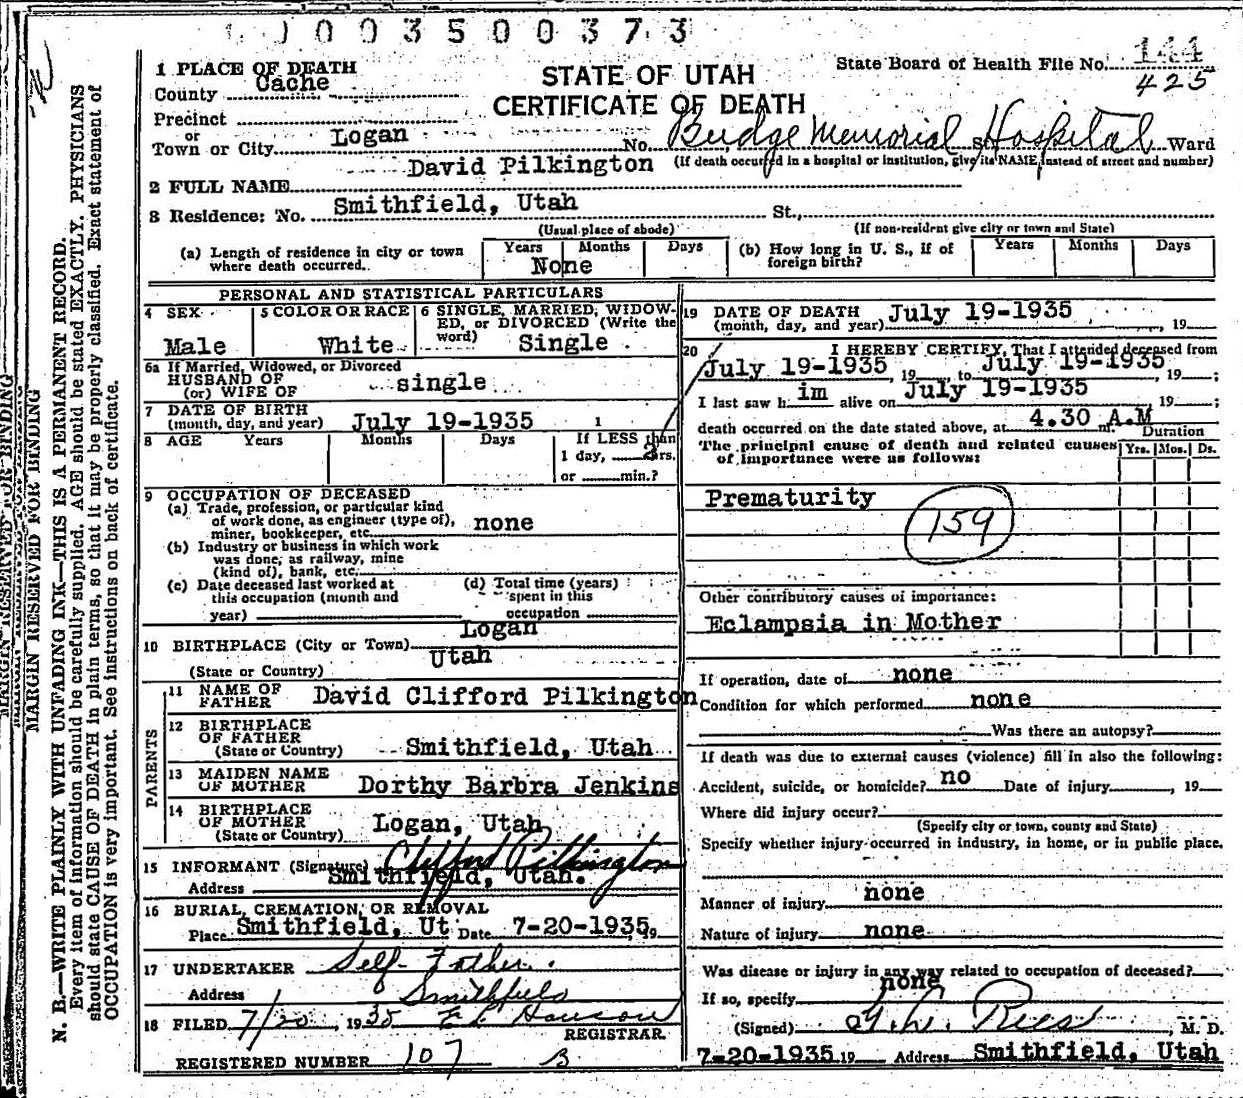 1003500373
1 PLACE OF DEATH
STATE OF UTAH
CERTIFICATE OF DEATH
State Board of Health File No. 144
425
County Cache
Precinct
or
Town or City Logan No. Budge Memorial Hospital St. Ward
(If death occurred in a hospital or institution, give its NAME, instead of street and number)
2 FULL NAME David Pilkington
3 Residence: No. Smithfield, Utah St.,
(Usual place of abode) (If non-resident give city or town and State)
(a) Length of residence in city or town where death occurred. Years Months Days None
(b) How long in U. S., if of foreign birth? Years Months Days
PERSONAL AND STATISTICAL PARTICULARS
4 SEX Male
5 COLOR OR RACE White
6 SINGLE, MARRIED, WIDOWED, or DIVORCED (Write the word) Single
6a If Married, Widowed, or Divorced
HUSBAND OF
(or) WIFE OF single
7 DATE OF BIRTH
(month, day, and year) July 19-1935 1
8 AGE Years Months Days If LESS than
1 day, 3 hrs.
or min.?
9 OCCUPATION OF DECEASED
(a) Trade, profession, or particular kind
of work done, as engineer (type of),
miner, bookkeeper, etc. none
(b) Industry or business in which work
was done, as railway, mine
(kind of), bank, etc.
(c) Date deceased last worked at
this occupation (month and
year)
(d) Total time (years)
spent in this
occupation
10 BIRTHPLACE (City or Town) Logan
(State or Country) Utah
PARENTS
11 NAME OF
FATHER David Clifford Pilkington
12 BIRTHPLACE
OF FATHER
(State or Country) Smithfield, Utah
13 MAIDEN NAME
OF MOTHER Dorthy Barbra Jenkins
14 BIRTHPLACE
OF MOTHER
(State or Country) Logan, Utah
15 INFORMANT (Signature) Clifford Pilkington
Address Smithfield, Utah.
16 BURIAL, CREMATION, OR REMOVAL
Place Smithfield, Ut Date 7-20-1935, 19
17 UNDERTAKER Self-Father.
Address Smithfield
18 FILED 7/20, 1935
REGISTRAR.
REGISTERED NUMBER 107 3
19 DATE OF DEATH
(month, day, and year) July 19-1935, 19
20 I HEREBY CERTIFY, That I attended deceased from
July 19-1935, 19 to July 19-1935, 19 ;
I last saw him alive on July 19-1935, 19 ;
death occurred on the date stated above, at 4.30 A.M m.
The principal cause of death and related causes
of importance were as follows:
Duration
Yrs. Mos. Ds.
Prematurity
159
Other contributory causes of importance:
Eclampsia in Mother
If operation, date of none
Condition for which performed none
Was there an autopsy?
If death was due to external causes (violence) fill in also the following:
Accident, suicide, or homicide? no Date of injury , 19
Where did injury occur?
(Specify city or town, county and State)
Specify whether injury occurred in industry, in home, or in public place.
Manner of injury none
Nature of injury none
Was disease or injury in any way related to occupation of deceased?
If so, specify none
(Signed) G. L. Rees, M. D.
7-20-1935 19 Address Smithfield, Utah
MARGIN RESERVED FOR BINDING
MARGIN RESERVED FOR BINDING
N. B.—WRITE PLAINLY WITH UNFADING INK—THIS IS A PERMANENT RECORD.
Every item of information should be carefully supplied. AGE should be stated EXACTLY. PHYSICIANS
should state CAUSE OF DEATH in plain terms, so that it may be properly classified. Exact statement of
OCCUPATION is very important. See instructions on back of certificate.